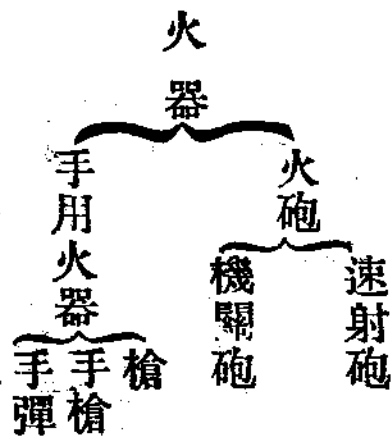 火器
火砲
速射砲
機關砲
手用火器
槍
手槍
手彈